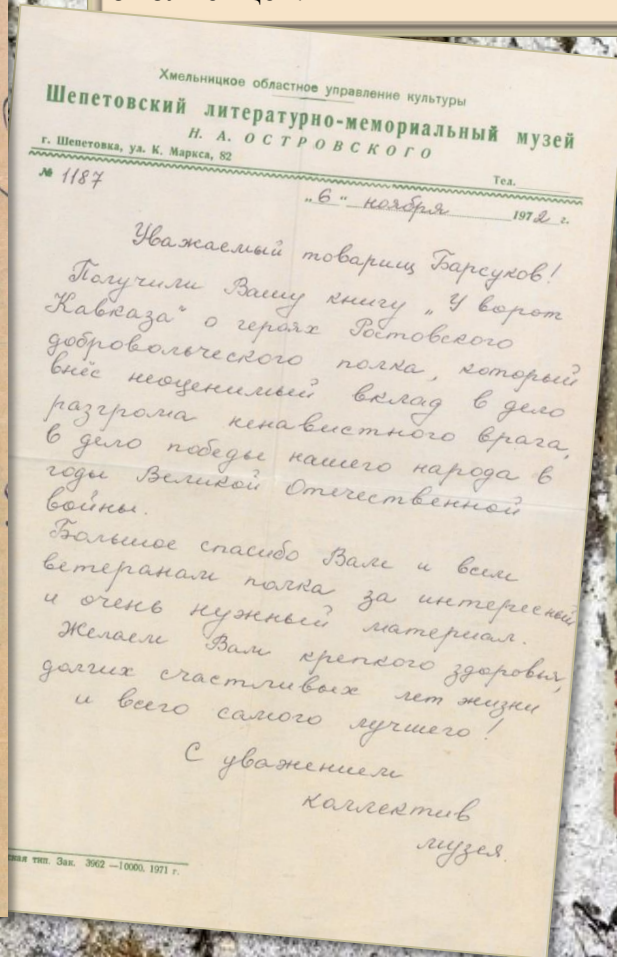 Хмельницкое областное управление культуры
Шепетовский литературно-мемориальный музей
Н. А. ОСТРОВСКОГО
г. Шепетовка, ул. К. Маркса, 82
Тел.
№ 1187
„6" ноября 1972 г.
Уважаемый товарищ Барсуков!
Получили Вашу книгу „У ворот
Кавказа" о героях Ростовского
добровольческого полка, который
внёс неоценимый вклад в дело
разгрома ненавистного врага,
в дело победы нашего народа в
годы Великой Отечественной
войны.
Большое спасибо Вам и всем
ветеранам полка за интересный
и очень нужный материал.
Желаем Вам крепкого здоровья,
долгих счастливых лет жизни
и всего самого лучшего!
С уважением
коллектив
музея.
тип. Зак. 3962 —10000. 1971 г.